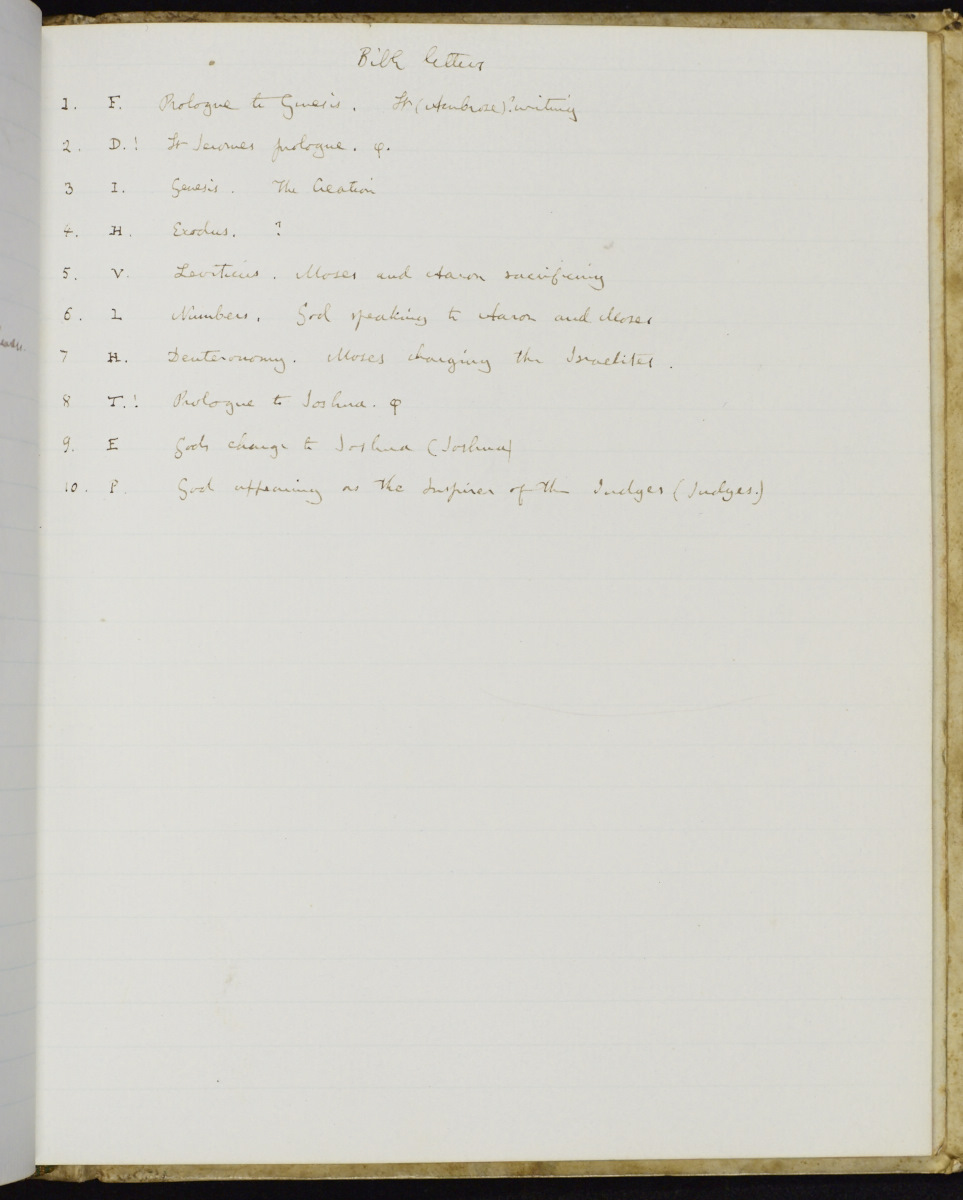 Bible letters
1. F. Prologue to Genesis. St (Ambrose)? writing
2. D.! St Jeromes prologue. φ.
3 I. Genesis. The Creation
4. H. Exodus. ?
5. V. Leviticus. Moses and Aaron sacrificing
6. L Numbers. God speaking to Aaron and Moses
7 H. Deuteronomy. Moses charging the Israelites.
8 T.! Prologue to Joshua. φ
9. E Gods charge to Joshua (Joshua)
10. P. God appearing as the Inspirer of the Judges (Judges.)